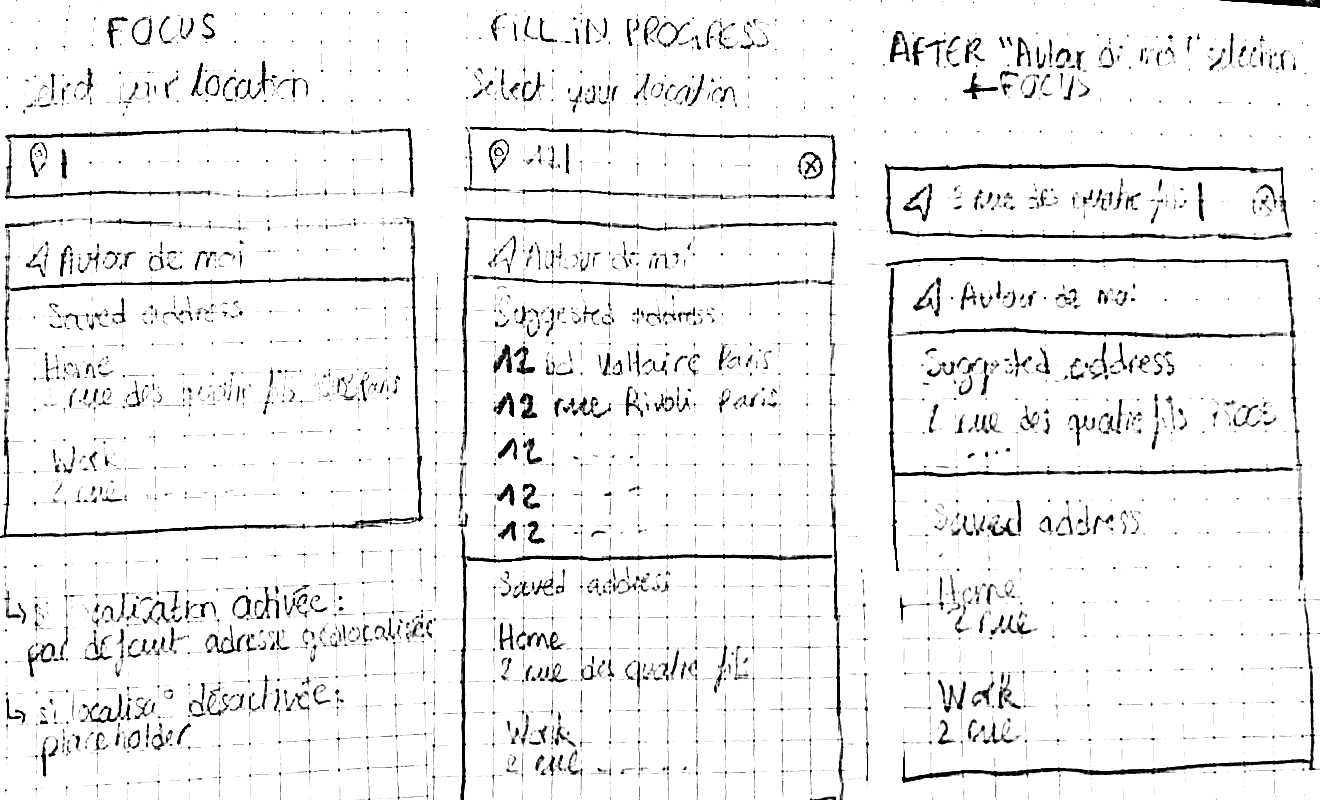 FOCUS
Select your location
Autour de moi
Saved address
Home
rue des quatre fils
Work
2 rue
activée :
par défaut adresse géolocalisée
↳ si localisa° désactivée :
placeholder
FILL IN PROGRESS
Select your location
12
Autour de moi
Suggested address
12 bd Voltaire Paris
12 rue Rivoli Paris
12 ....
12 - -
12 - -
Saved address
Home
2 rue des quatre fils
Work
2 rue ......
AFTER "Autour de moi" selection
+ FOCUS
2 rue des quatre fils
Autour de moi
Suggested address
rue des quatre fils 75003
....
Saved address
Home
2 rue
Work
2 rue